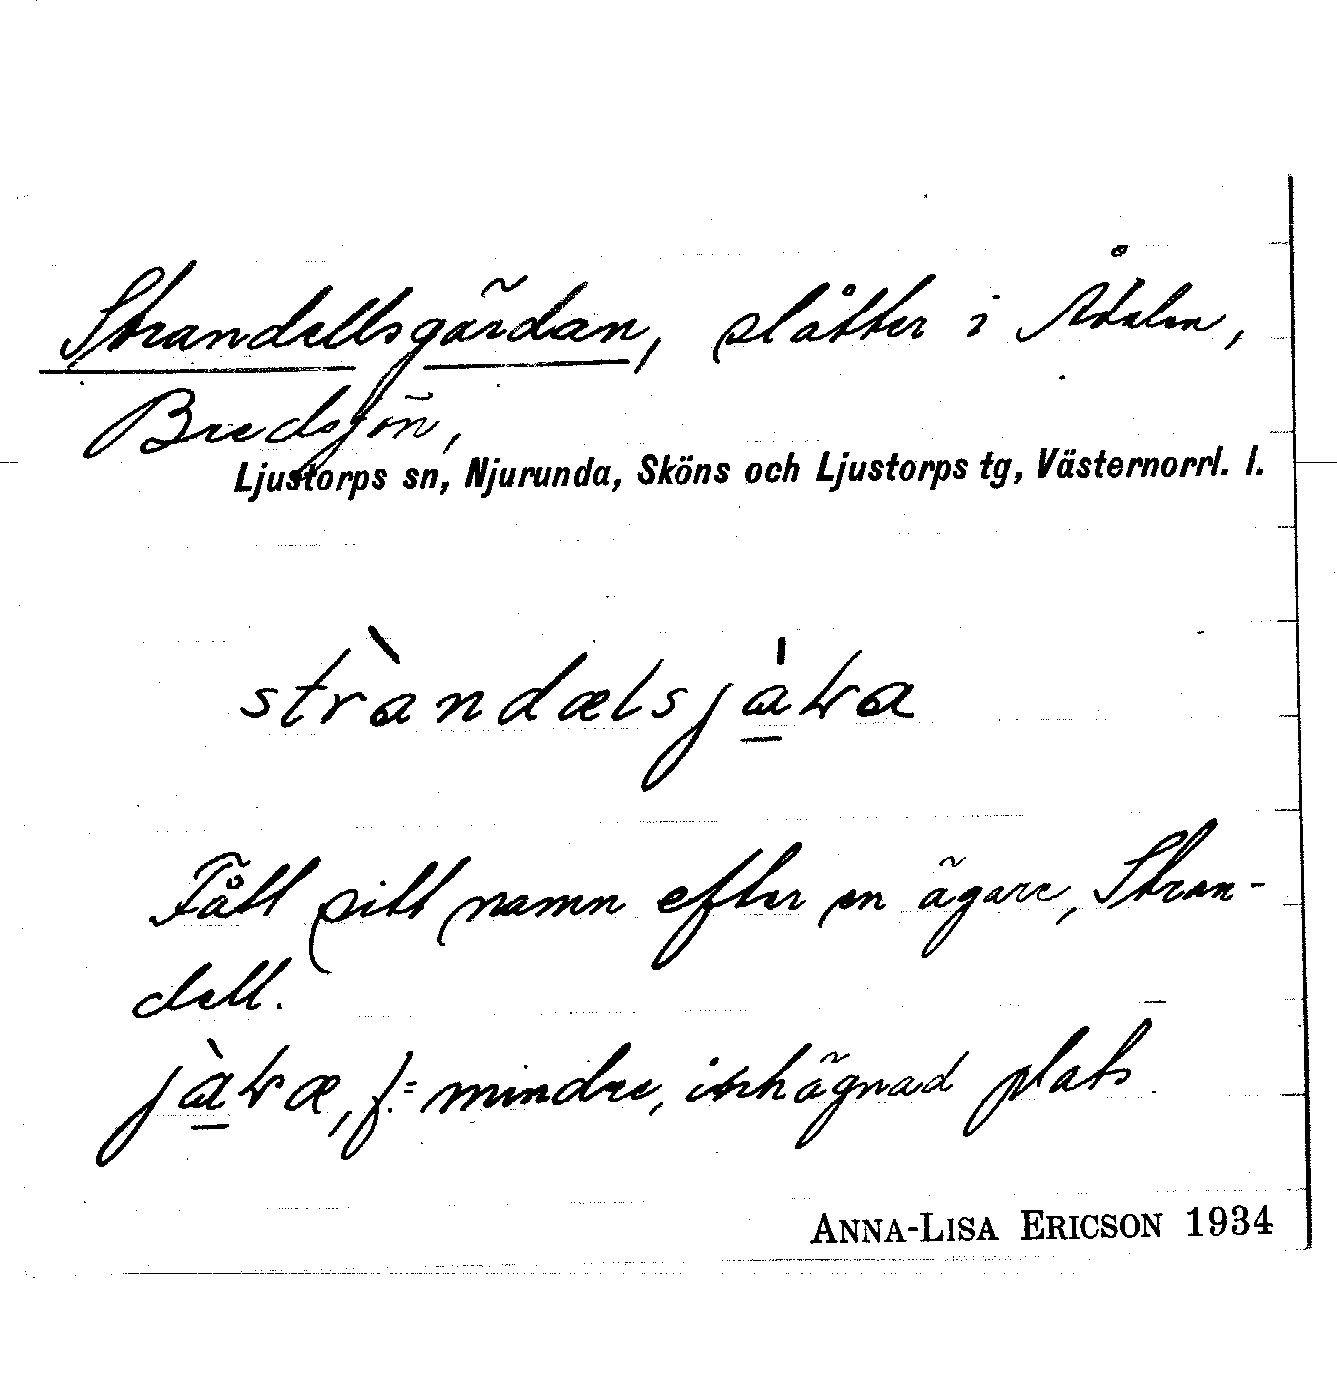 Strandellsgärdan, slåtter i Ådalen,
Bredsjön,
Ljustorps sn, Njurunda, Sköns och Ljustorps tg, Västernorrl. l.
stràndælsjàɽa
Fått sitt namn efter en ägare, Stran-
dell.
jàɽæ, f. = mindre, inhägnad plats
ANNA-LISA ERICSON 1934